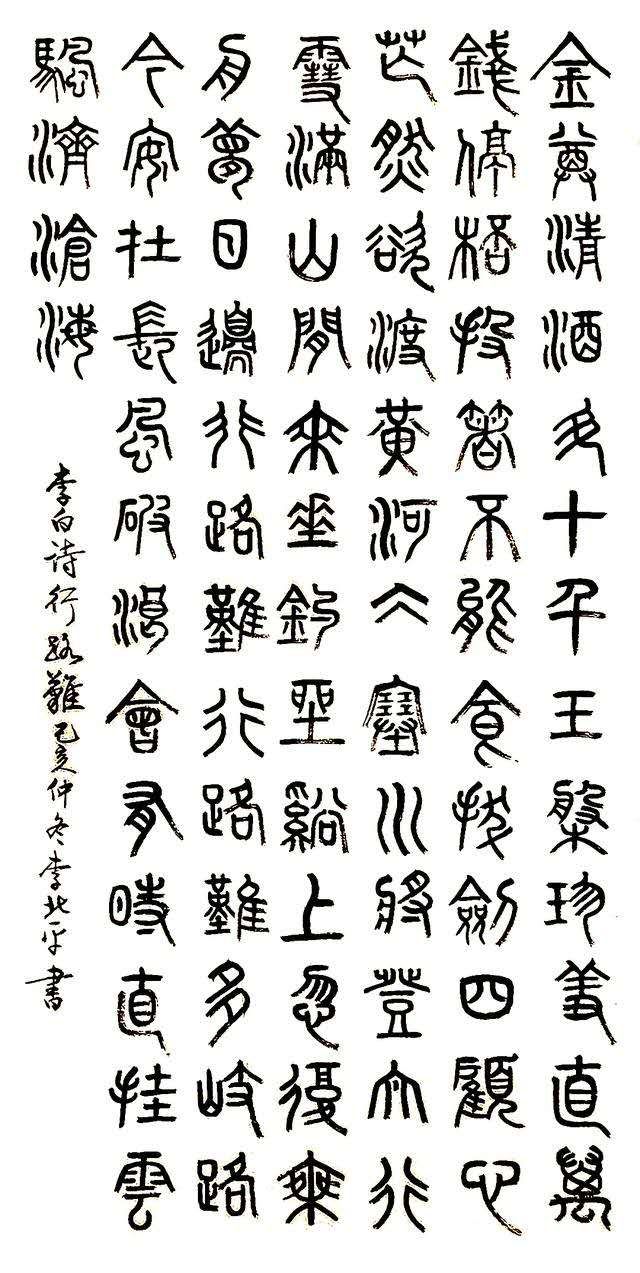 金尊清酒斗十千玉槃珍羞直萬
錢停桮投箸不能食拔劍四顧心
芒然欲渡黃河仌塞川將登太行
雪滿山閒來垂釣坐谿上忽復乘
舟夢日邊行路難行路難多岐路
今安在長風破浪會有時直挂雲
颿濟滄海
李白詩行路難己亥仲冬李北平書